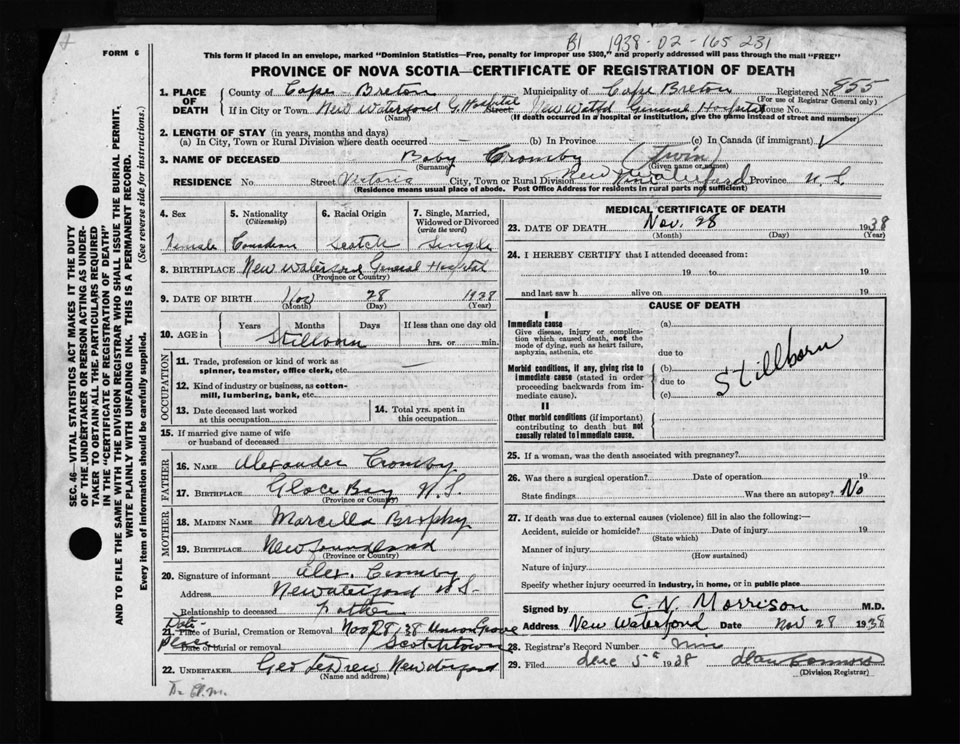 B1 1938-02-165 231
FORM 6
This form if placed in an envelope, marked "Dominion Statistics—Free, penalty for improper use $300," and properly addressed will pass through the mail "FREE"
PROVINCE OF NOVA SCOTIA—CERTIFICATE OF REGISTRATION OF DEATH
1. PLACE OF DEATH
County of Cape Breton Municipality of Cape Breton Registered No. 855
(For use of Registrar General only)
If in City or Town New Waterford G. Hospital Street New Waterford General Hospital House No.
(Name) (If death occurred in a hospital or institution, give the name instead of street and number)
2. LENGTH OF STAY (in years, months and days)
(a) In City, Town or Rural Division where death occurred (b) In Province (c) In Canada (if immigrant)
3. NAME OF DECEASED Baby Cromby (Twin)
(Surname) (Given name or names)
RESIDENCE No. Street Victoria City, Town or Rural Division New Waterford Province N.S.
(Residence means usual place of abode. Post Office Address for residents in rural parts not sufficient)
4. Sex Female
5. Nationality (Citizenship) Canadian
6. Racial Origin Scotch
7. Single, Married, Widowed or Divorced (write the word) Single
8. BIRTHPLACE New Waterford General Hospital
(Province or Country)
9. DATE OF BIRTH Nov 28 1938
(Month) (Day) (Year)
10. AGE in Years Months Days If less than one day old
Stillborn hrs. or min.
OCCUPATION
11. Trade, profession or kind of work as spinner, teamster, office clerk, etc. —
12. Kind of industry or business, as cotton-mill, lumbering, bank, etc.
13. Date deceased last worked at this occupation
14. Total yrs. spent in this occupation
15. If married give name of wife or husband of deceased
FATHER
16. NAME Alexander Cromby
17. BIRTHPLACE Glace Bay N.S.
(Province or Country)
MOTHER
18. MAIDEN NAME Marcella Brophy
19. BIRTHPLACE Newfoundland
(Province or Country)
20. Signature of informant Alex. Cromby
Address New Waterford N.S.
Relationship to deceased Father
21. Place of Burial, Cremation or Removal Nov 28, 38 Union Grove
Date of burial or removal Scotchtown
22. UNDERTAKER Geo New Waterford
(Name and address)
MEDICAL CERTIFICATE OF DEATH
23. DATE OF DEATH Nov. 28 1938
(Month) (Day) (Year)
24. I HEREBY CERTIFY that I attended deceased from:
19 to 19
and last saw h alive on 19
CAUSE OF DEATH
I
Immediate cause
Give disease, injury or complication which caused death, not the mode of dying, such as heart failure, asphyxia, asthenia, etc
(a)
due to
Morbid conditions, if any, giving rise to immediate cause (stated in order proceeding backwards from immediate cause).
(b)
due to
(c)
Stillborn
II
Other morbid conditions (if important) contributing to death but not causally related to immediate cause.
25. If a woman, was the death associated with pregnancy?
26. Was there a surgical operation? Date of operation 19
State findings Was there an autopsy? No
27. If death was due to external causes (violence) fill in also the following:—
Accident, suicide or homicide? Date of injury 19
(State which)
Manner of injury
(How sustained)
Nature of injury
Specify whether injury occurred in industry, in home, or in public place
Signed by C. N. Morrison M.D.
Address New Waterford Date Nov 28 1938
28. Registrar's Record Number
29. Filed Dec 5th 1938
(Division Registrar)
SEC. 46—VITAL STATISTICS ACT MAKES IT THE DUTY
OF THE UNDERTAKER OR PERSON ACTING AS UNDER-
TAKER TO OBTAIN ALL THE PARTICULARS REQUIRED
IN THE "CERTIFICATE OF REGISTRATION OF DEATH"
AND TO FILE THE SAME WITH THE DIVISION REGISTRAR WHO SHALL ISSUE THE BURIAL PERMIT.
WRITE PLAINLY WITH UNFADING INK. THIS IS A PERMANENT RECORD.
Every item of information should be carefully supplied. (See reverse side for instructions.)